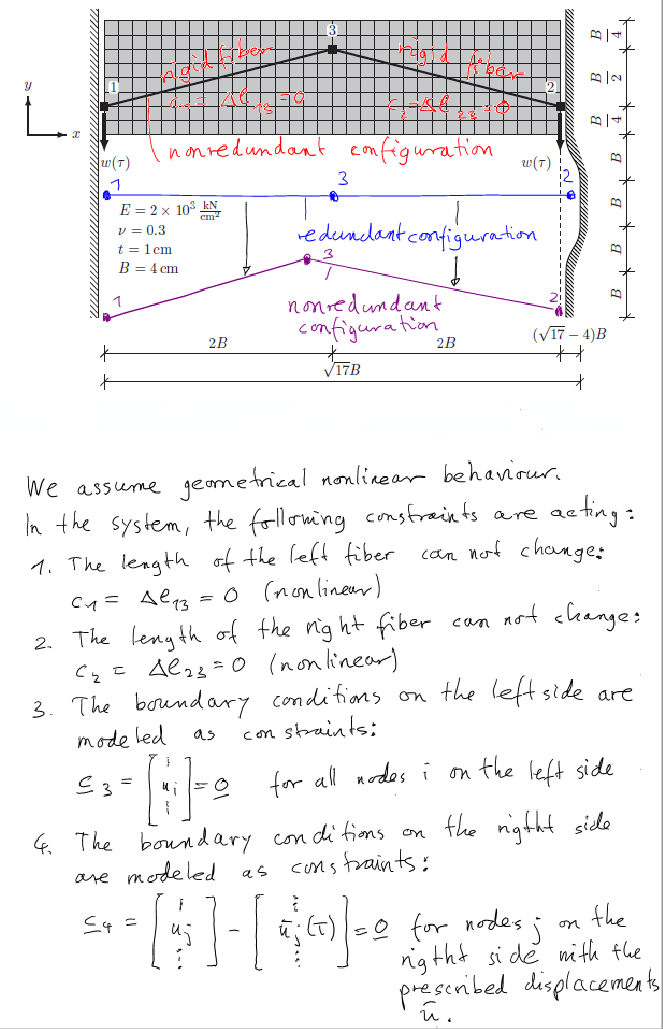 3
B/4
rigid fiber
rigid fiber
1
2
c₁ = Δℓ₁₃ = 0
c₂ = Δℓ₂₃ = 0
B/2
y
x
B/4
nonredundant configuration
w(τ)
w(τ)
B
1
3
2
E = 2 × 10³ kN/cm²
ν = 0.3
t = 1 cm
B = 4 cm
redundant configuration
B
B
3
1
2
nonredundant
configuration
B
2B
2B
(√17 − 4)B
√17B
We assume geometrical nonlinear behaviour.
In the system, the following constraints are acting:
1. The length of the left fiber can not change:
c₁ = Δℓ₁₃ = 0 (nonlinear)
2. The length of the right fiber can not change:
c₂ = Δℓ₂₃ = 0 (nonlinear)
3. The boundary conditions on the left side are
modeled as constraints:
c₃ = [⋮ uᵢ ⋮] = 0 for all nodes i on the left side
4. The boundary conditions on the rigtht side
are modeled as constraints:
c₄ = [⋮ uⱼ ⋮] − [⋮ ūⱼ(τ) ⋮] = 0 for nodes j on the
rigtht side with the
prescribed displacements
ū.